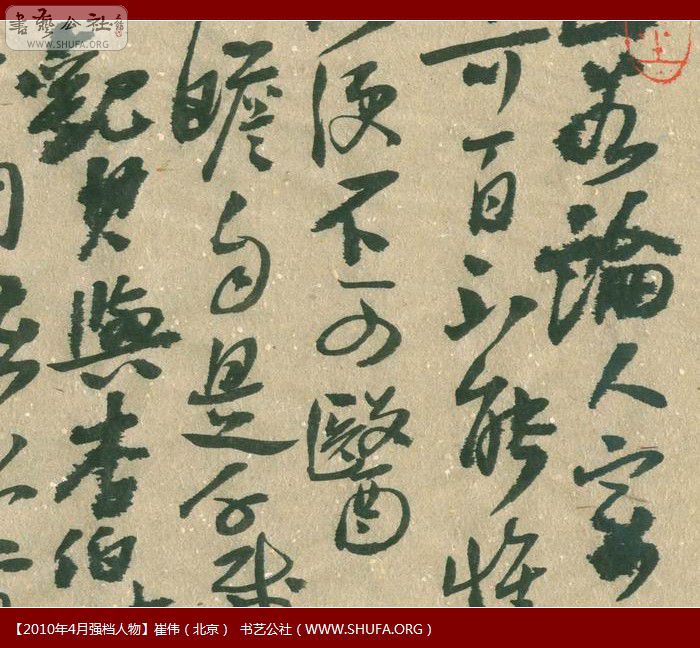 書藝公社
WWW.SHUFA.ORG
若論人
可百不能惟
便不可醫
瞻自是千載
觀其與李伯
【2010年4月强档人物】崔伟（北京） 书艺公社（WWW.SHUFA.ORG）